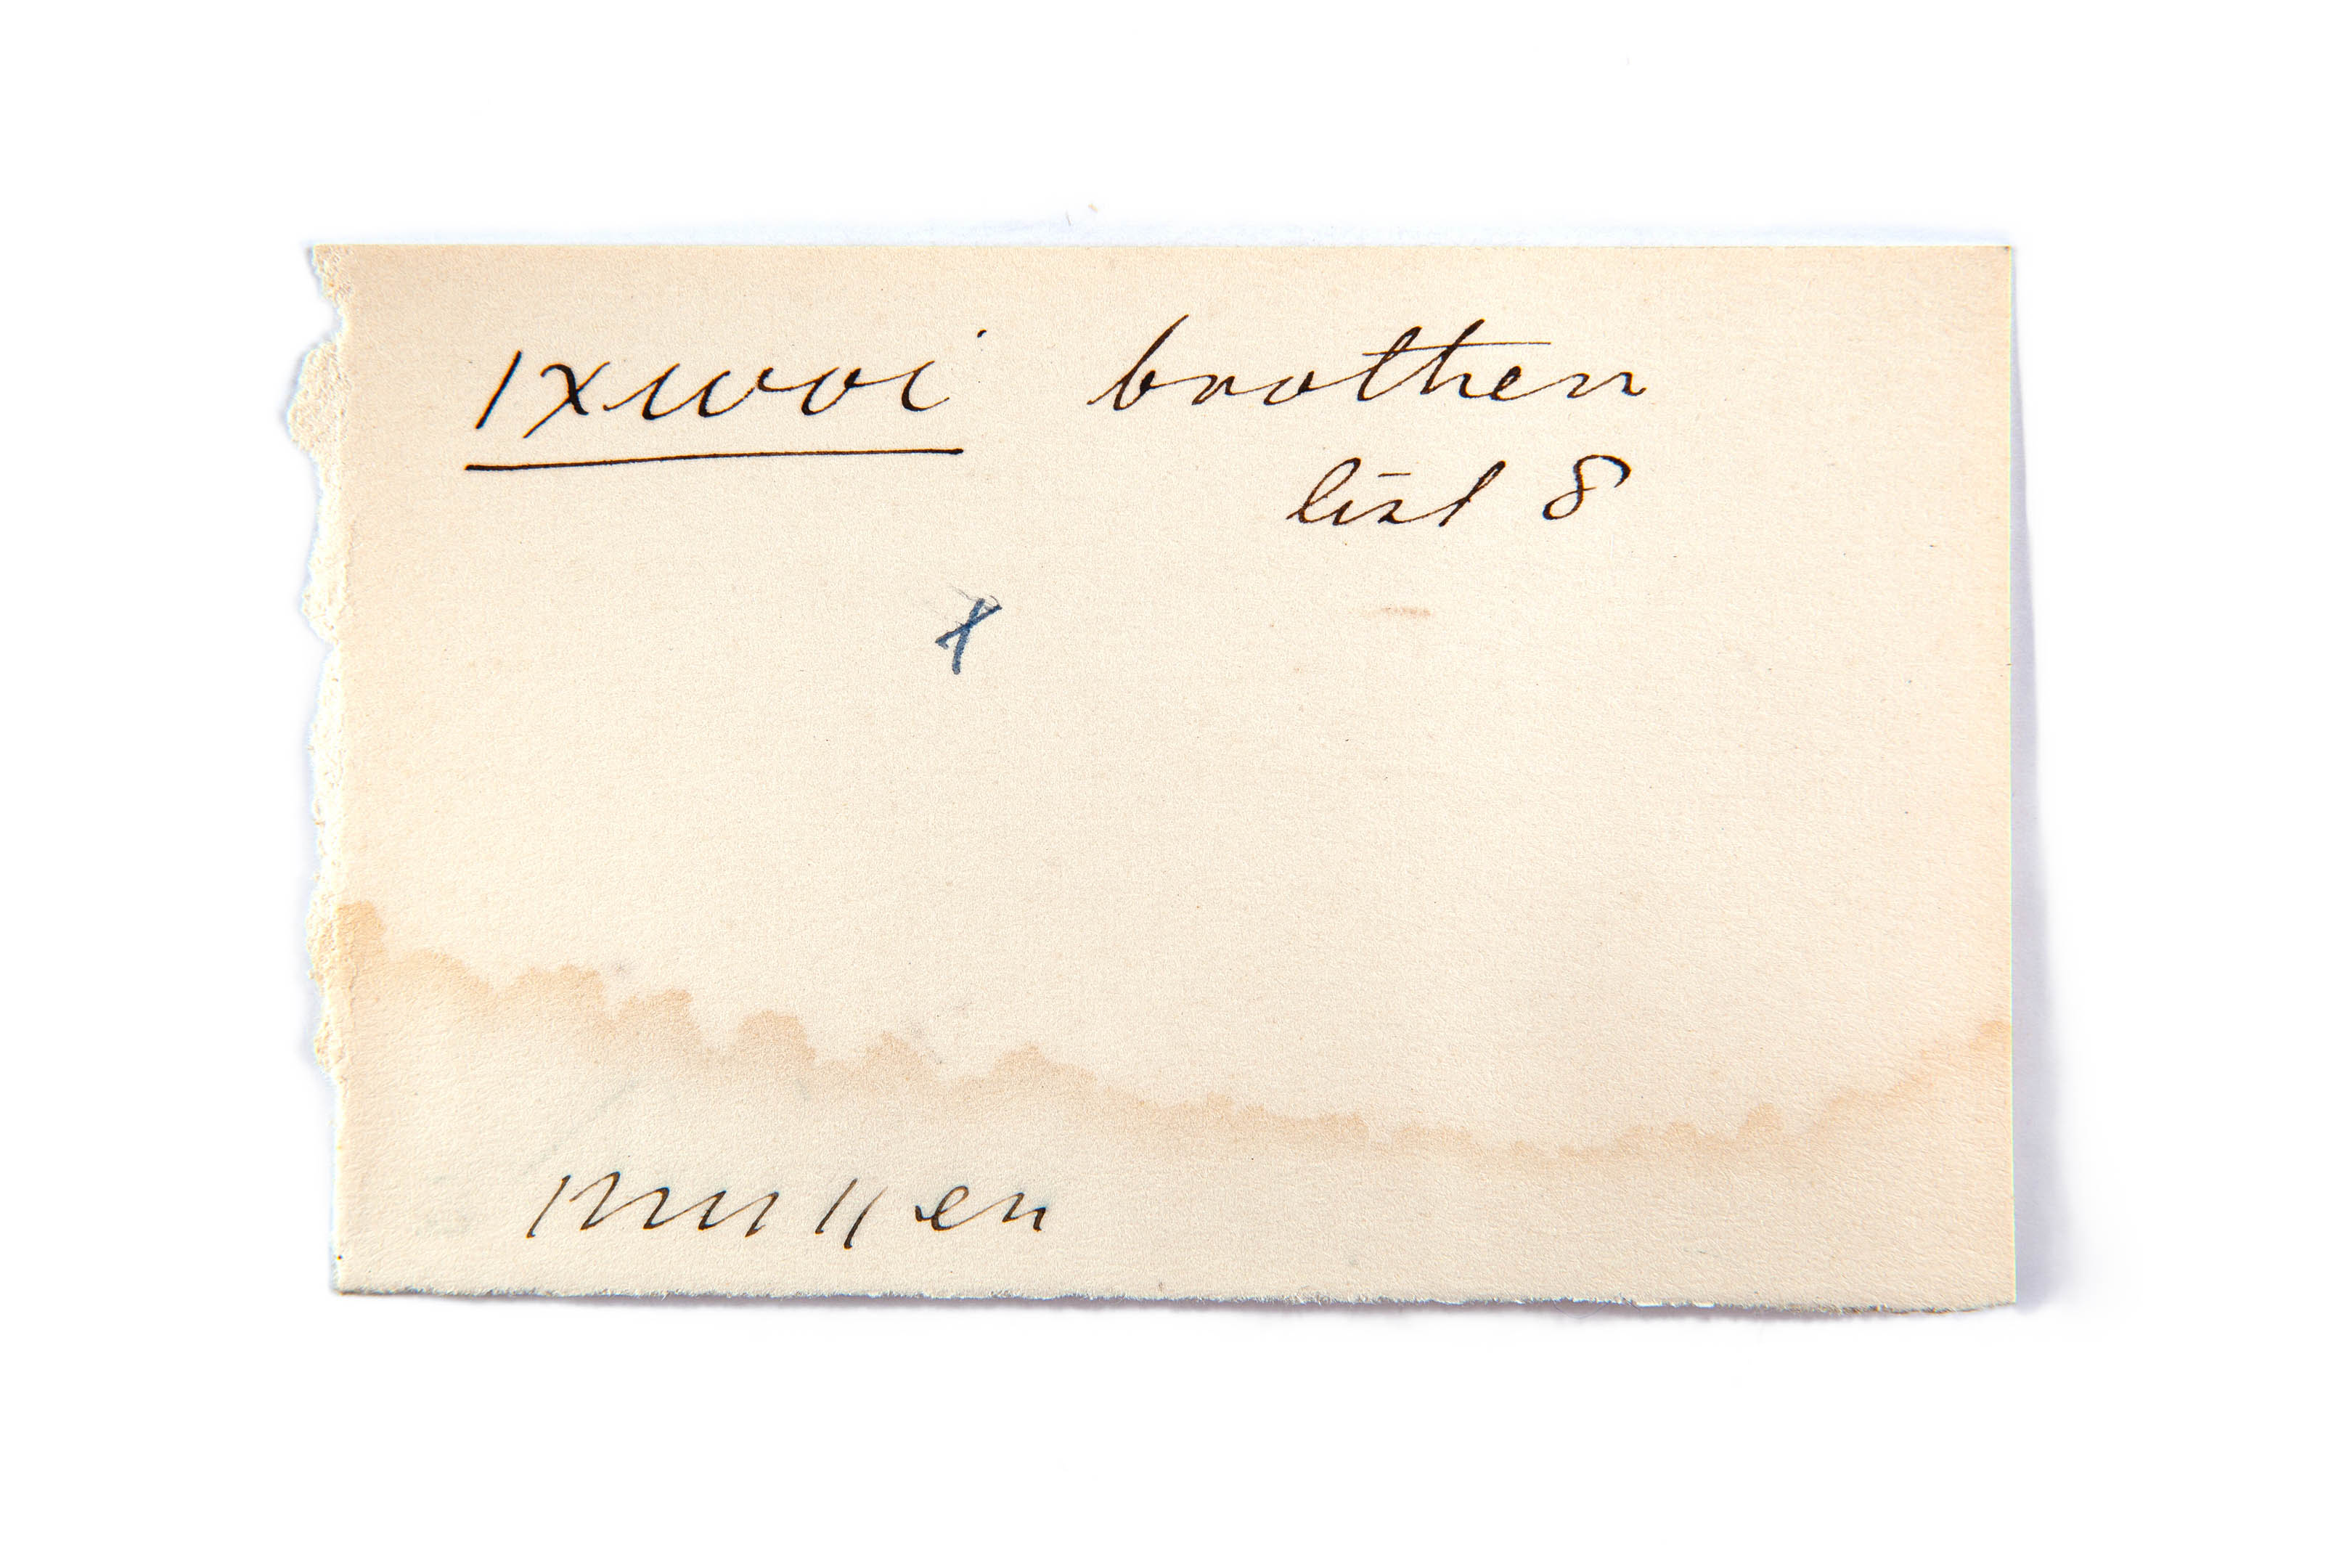 ixwoi brother
list 8
x
Muller